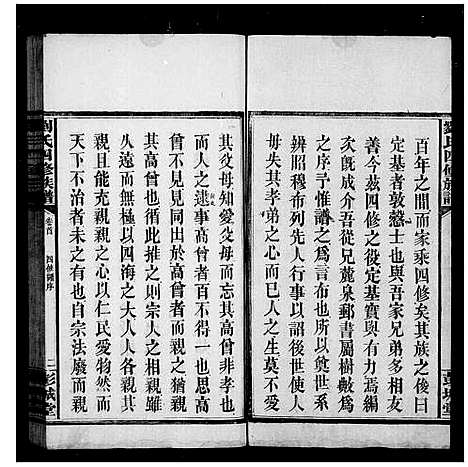 劉氏四修族譜
彭城堂
百年之間而家乘四修矣其族之後曰
定基者敦愨士也與吾家兄弟多相友
善今茲四修之役定基實與有力焉然
次既成介吾從兄麓泉郵書屬樹畝為
之序予惟譜之為言布也所以奠世系
辨昭穆布列先人行事以詔後世使人
人毋忘乎孝弟之心而已夫人生莫不愛
其父母知愛父母而忘其高曾非孝也
而人之逮事高曾者百不得一也然而
高曾不見同出於高曾者而親之猶親
高曾也推之則宗人之相親雖
久遠而其極以四海之大人人各親其
親且能充親親之心以仁民愛物然而
天下不治者未之有也自宗法廢而民
劉氏四修族譜
卷首
四修譜序
二
彭城堂